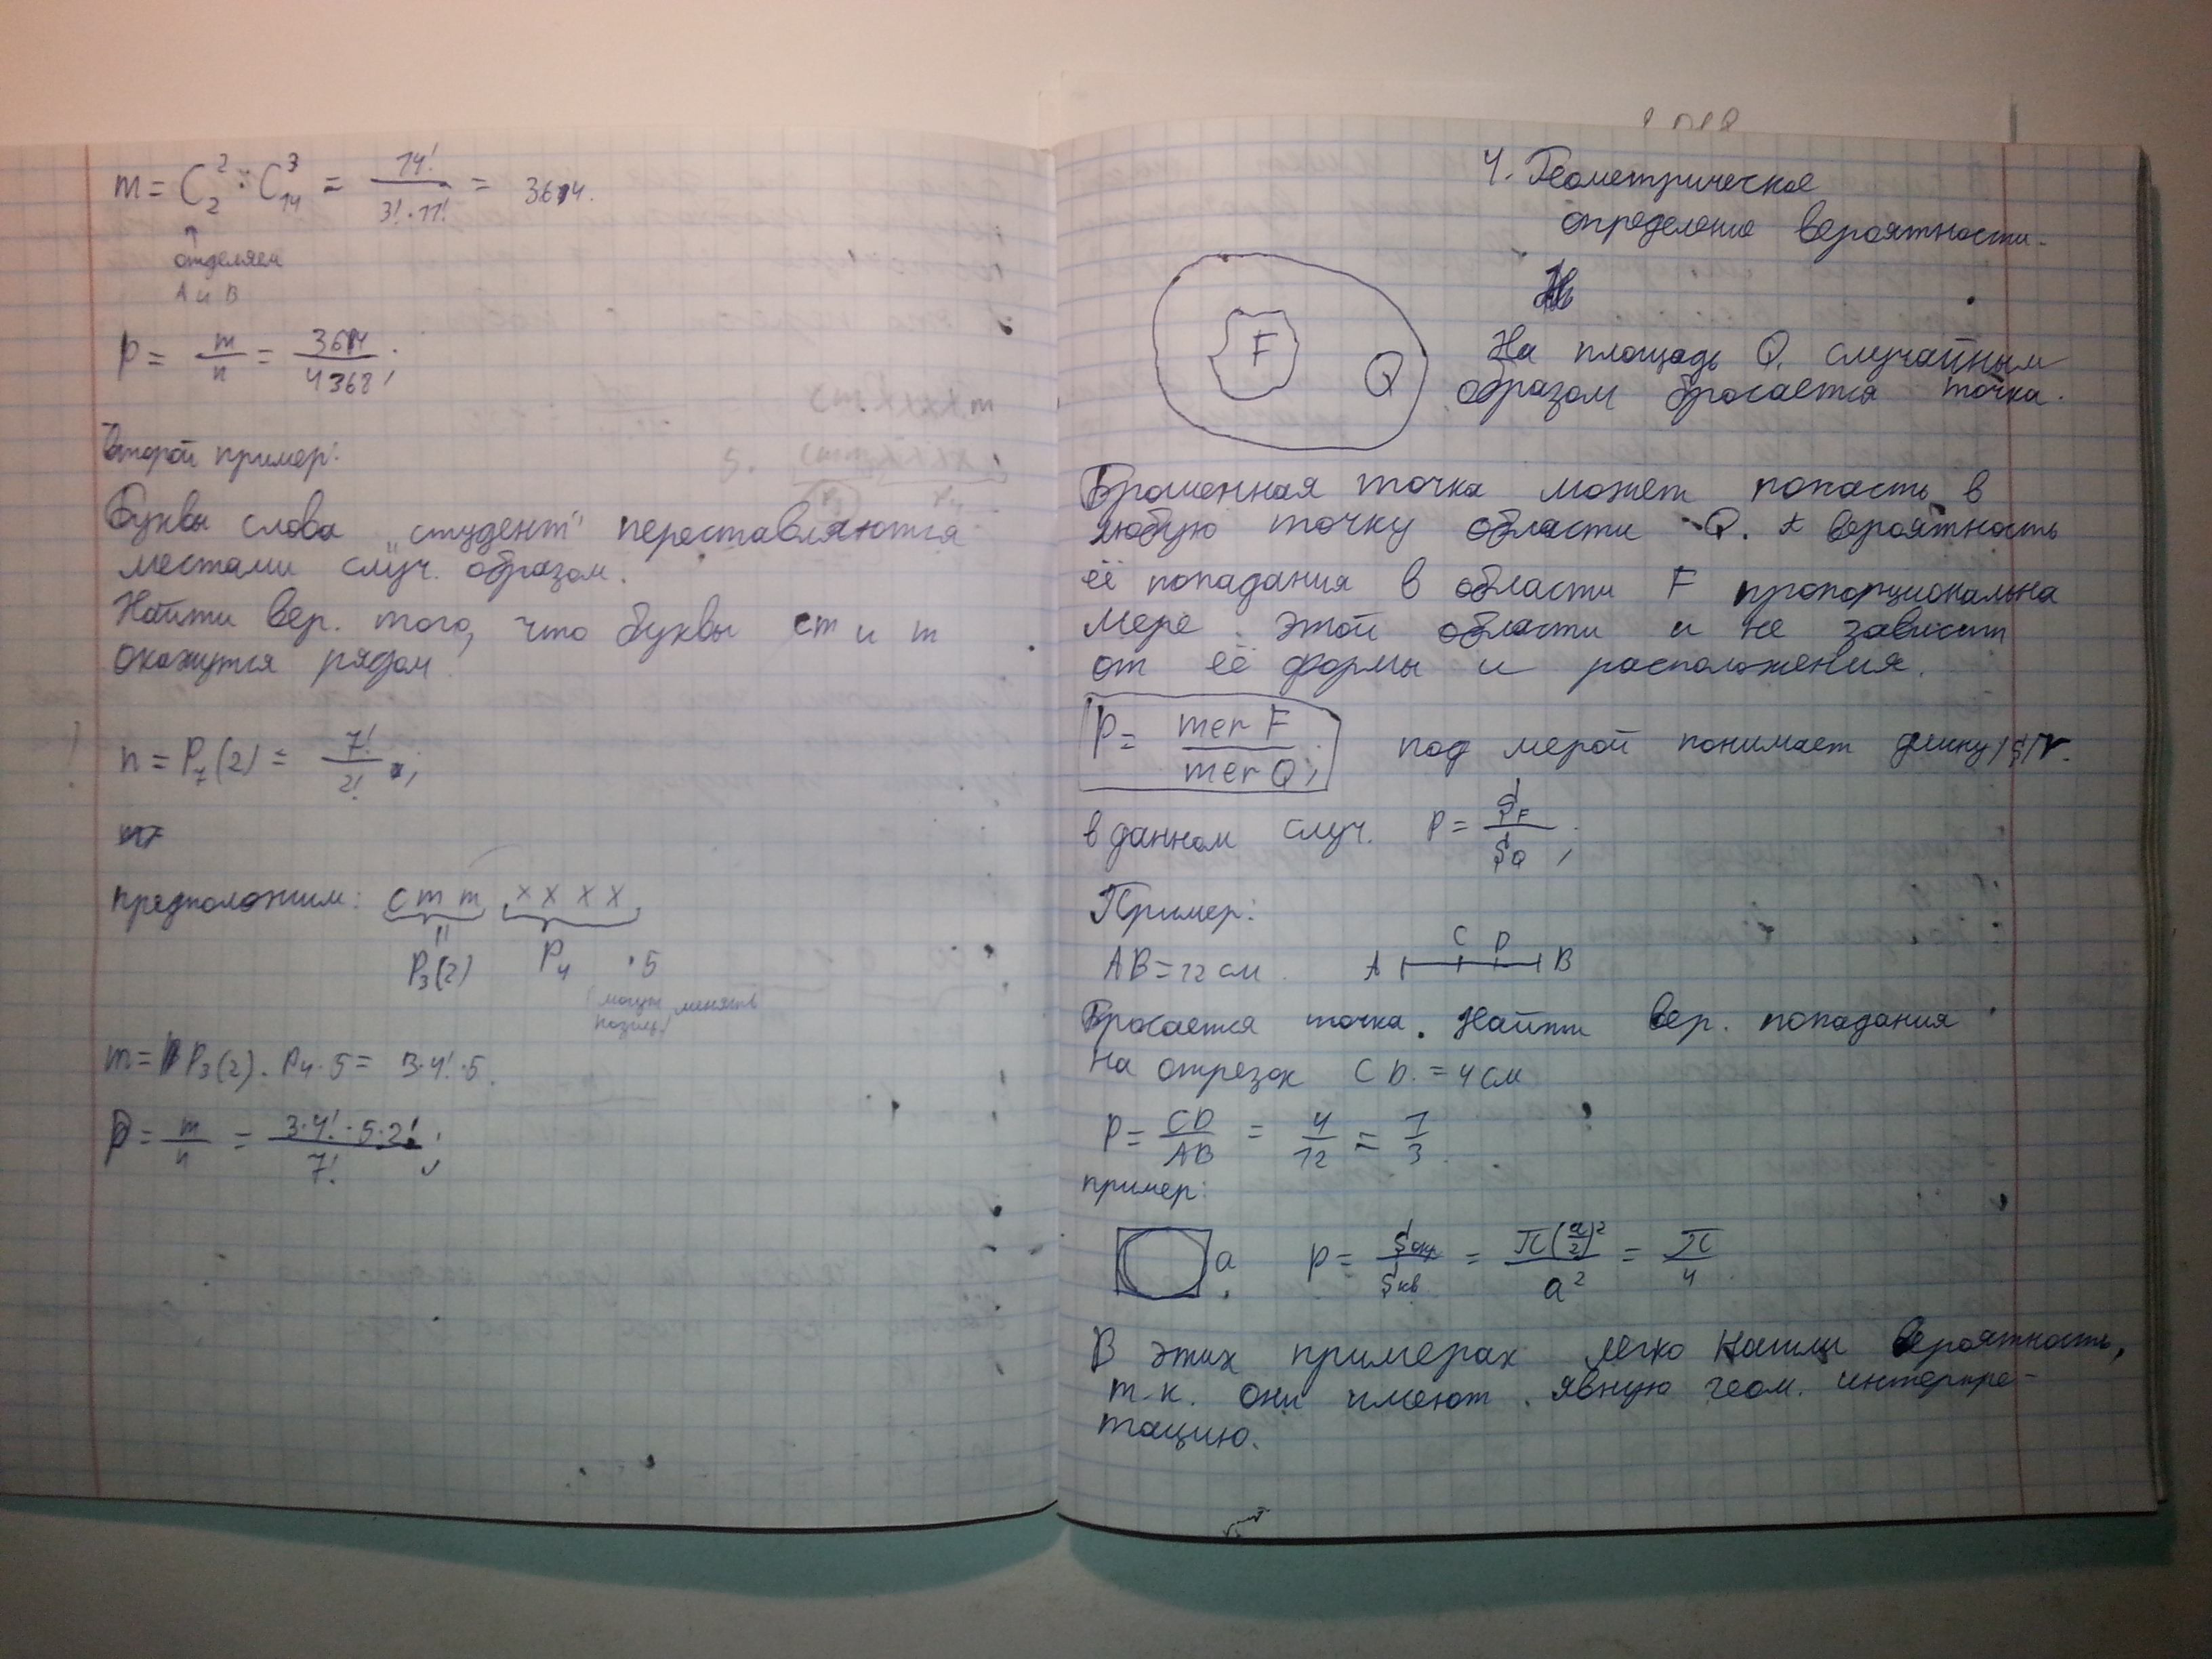 m = C₂² · C₁₄³ = 14! / 3!·11! = 364.
отделяем
А и В
p = m/n = 364/4368;
Второй пример:
Буквы слова „студент" переставляются
местами случ. образом.
Найти вер. того, что буквы с т и т
окажутся рядом.
n = P₇(2) = 7!/2!;
предположим: с т т х х х х
P₃(2) P₄ ·5
(могут менять
позиц.)
m = P₃(2) · P₄ · 5 = 3·4!·5.
p = m/n = 3·4!·5·2!/7!;
4. Геометрическое
определение вероятности.
F Q
На площадь Q случайным
образом бросается точка.
Брошенная точка может попасть в
любую точку области Q. А вероятность
её попадания в области F пропорциональна
мере этой области и не зависит
от её формы и расположения.
P = mer F / mer Q; под мерой понимает длину/S/V.
в данном случ. P = S_F / S_Q;
Пример:
AB = 12 см. A C D B
Бросается точка. Найти вер. попадания
на отрезок CD = 4 см
P = CD/AB = 4/12 = 1/3.
пример:
a p = Sокр/Sкв = π(a/2)²/a² = π/4.
В этих примерах легко нашли вероятность,
т.к. они имеют явную геом. интерпре-
тацию.